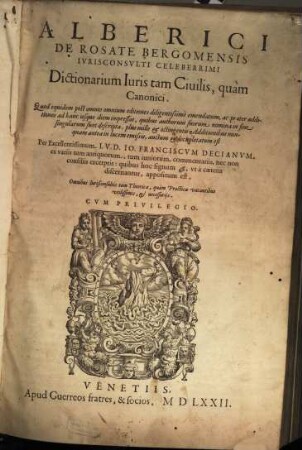 ALBERICI
DE ROSATE BERGOMENSIS
IVRISCONSVLTI CELEBERRIMI
Dictionarium Iuris tam Ciuilis, quàm
Canonici.
Quod equidem post omnes omnium editiones diligentissimè emendatum, ac præter additiones ad hanc usque diem impressas, quibus authorum suorum nomina in fine
singularum sunt descripta, plus mille &
quam antea in lucem emissæ, auctum &
Per Excellentissimum I.V.D. IO. FRANCISCVM DECIANVM,
ex varijs tum antiquorum, tum iuniorum, commentarijs, nec non
consilijs excerptis: quibus hoc signum &, vt à cæteris
discernantur, appositum est.
Omnibus Iurisconsultis tam Theorica, quàm Practica
vtilissimè, & necessarijs.
CVM PRIVILEGIO.
VENETIIS,
Apud Guerreos fratres, & socios, M D LXXII.